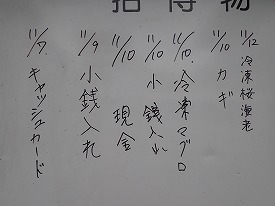 拾得物
11/12 冷凍桜海老
11/10 カギ
11/10 冷凍マグロ
11/10 小銭入れ
11/10 現金
11/9 小銭入れ
11/7 キャッシュカード